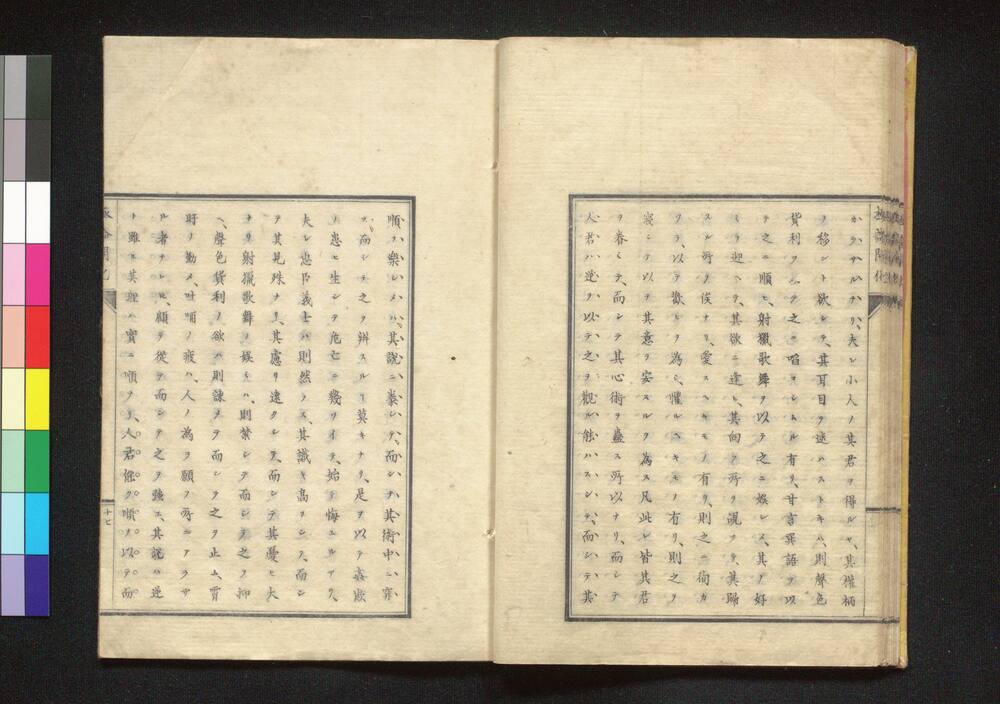 カラサルナリ、夫レ小人ノ其君ヲ得ルヤ、其權柄
ノ移シト欲シテ、其耳目ヲ迷ハストキハ、則聲色
貨利ヲシテ之ニ啗ヨシムル有リ、甘言巽語ヲ以
テ之ニ順ヒ、射獵歌舞ヲ以テ之ニ娯シミ、其ノ好
ミヲ迎ヘテ、其欲ニ達ヒ、其向フ所ヲ覘フテ、其歸
スル所ヲ俟ナリ、愛スヘキモノ有リ、則之ニ徇カ
フテ、以テ歡ヒヲ為シ、懼ルヘキモノ有リ、則之ヲ
寢シテ以テ其意ヲ安スルヲ為ス凡此レ皆其君
ヲ眷ミテ、而シテ其心術ヲ蠱ス所以ナリ、而シテ
人君ハ逆ヲ以テ之ヲ觀ル能ハスシテ、而シテ其
順ヲ樂シメハ、其說ニ裴シテ、而シテ其術中ニ穽
ヲ、而シテ之ヲ辨スル莫キナリ、是ヲ以テ姦
ノ患ヒ生シテ危亡ニ幾リイテ、始テ悔ユルアリ、
夫レ忠臣義士ハ則然ラス、其識ミ髙クシテ、而シ
テ其見殊ナリ、其慮リ遠クシテ、而シテ其憂ヒ大
ナリ射獵歌舞ノ娯ミハ、則禁シテ而シテ之ヲ抑
ヘ、聲色貨利ノ欲ハ、則諫メテ而シテ之ヲ止ム、宵
旰ノ勤メ、吁咈ノ疲ハ、人ノ為ヲ願フ所ニアラサ
ル者ナレヒ、顧テ從テ而シテ之ヲ強ユ、其說ハ逆
ト雖ヒ其理ハ實ニ順ナリ、人君能ク順ヲ以テ而
十七